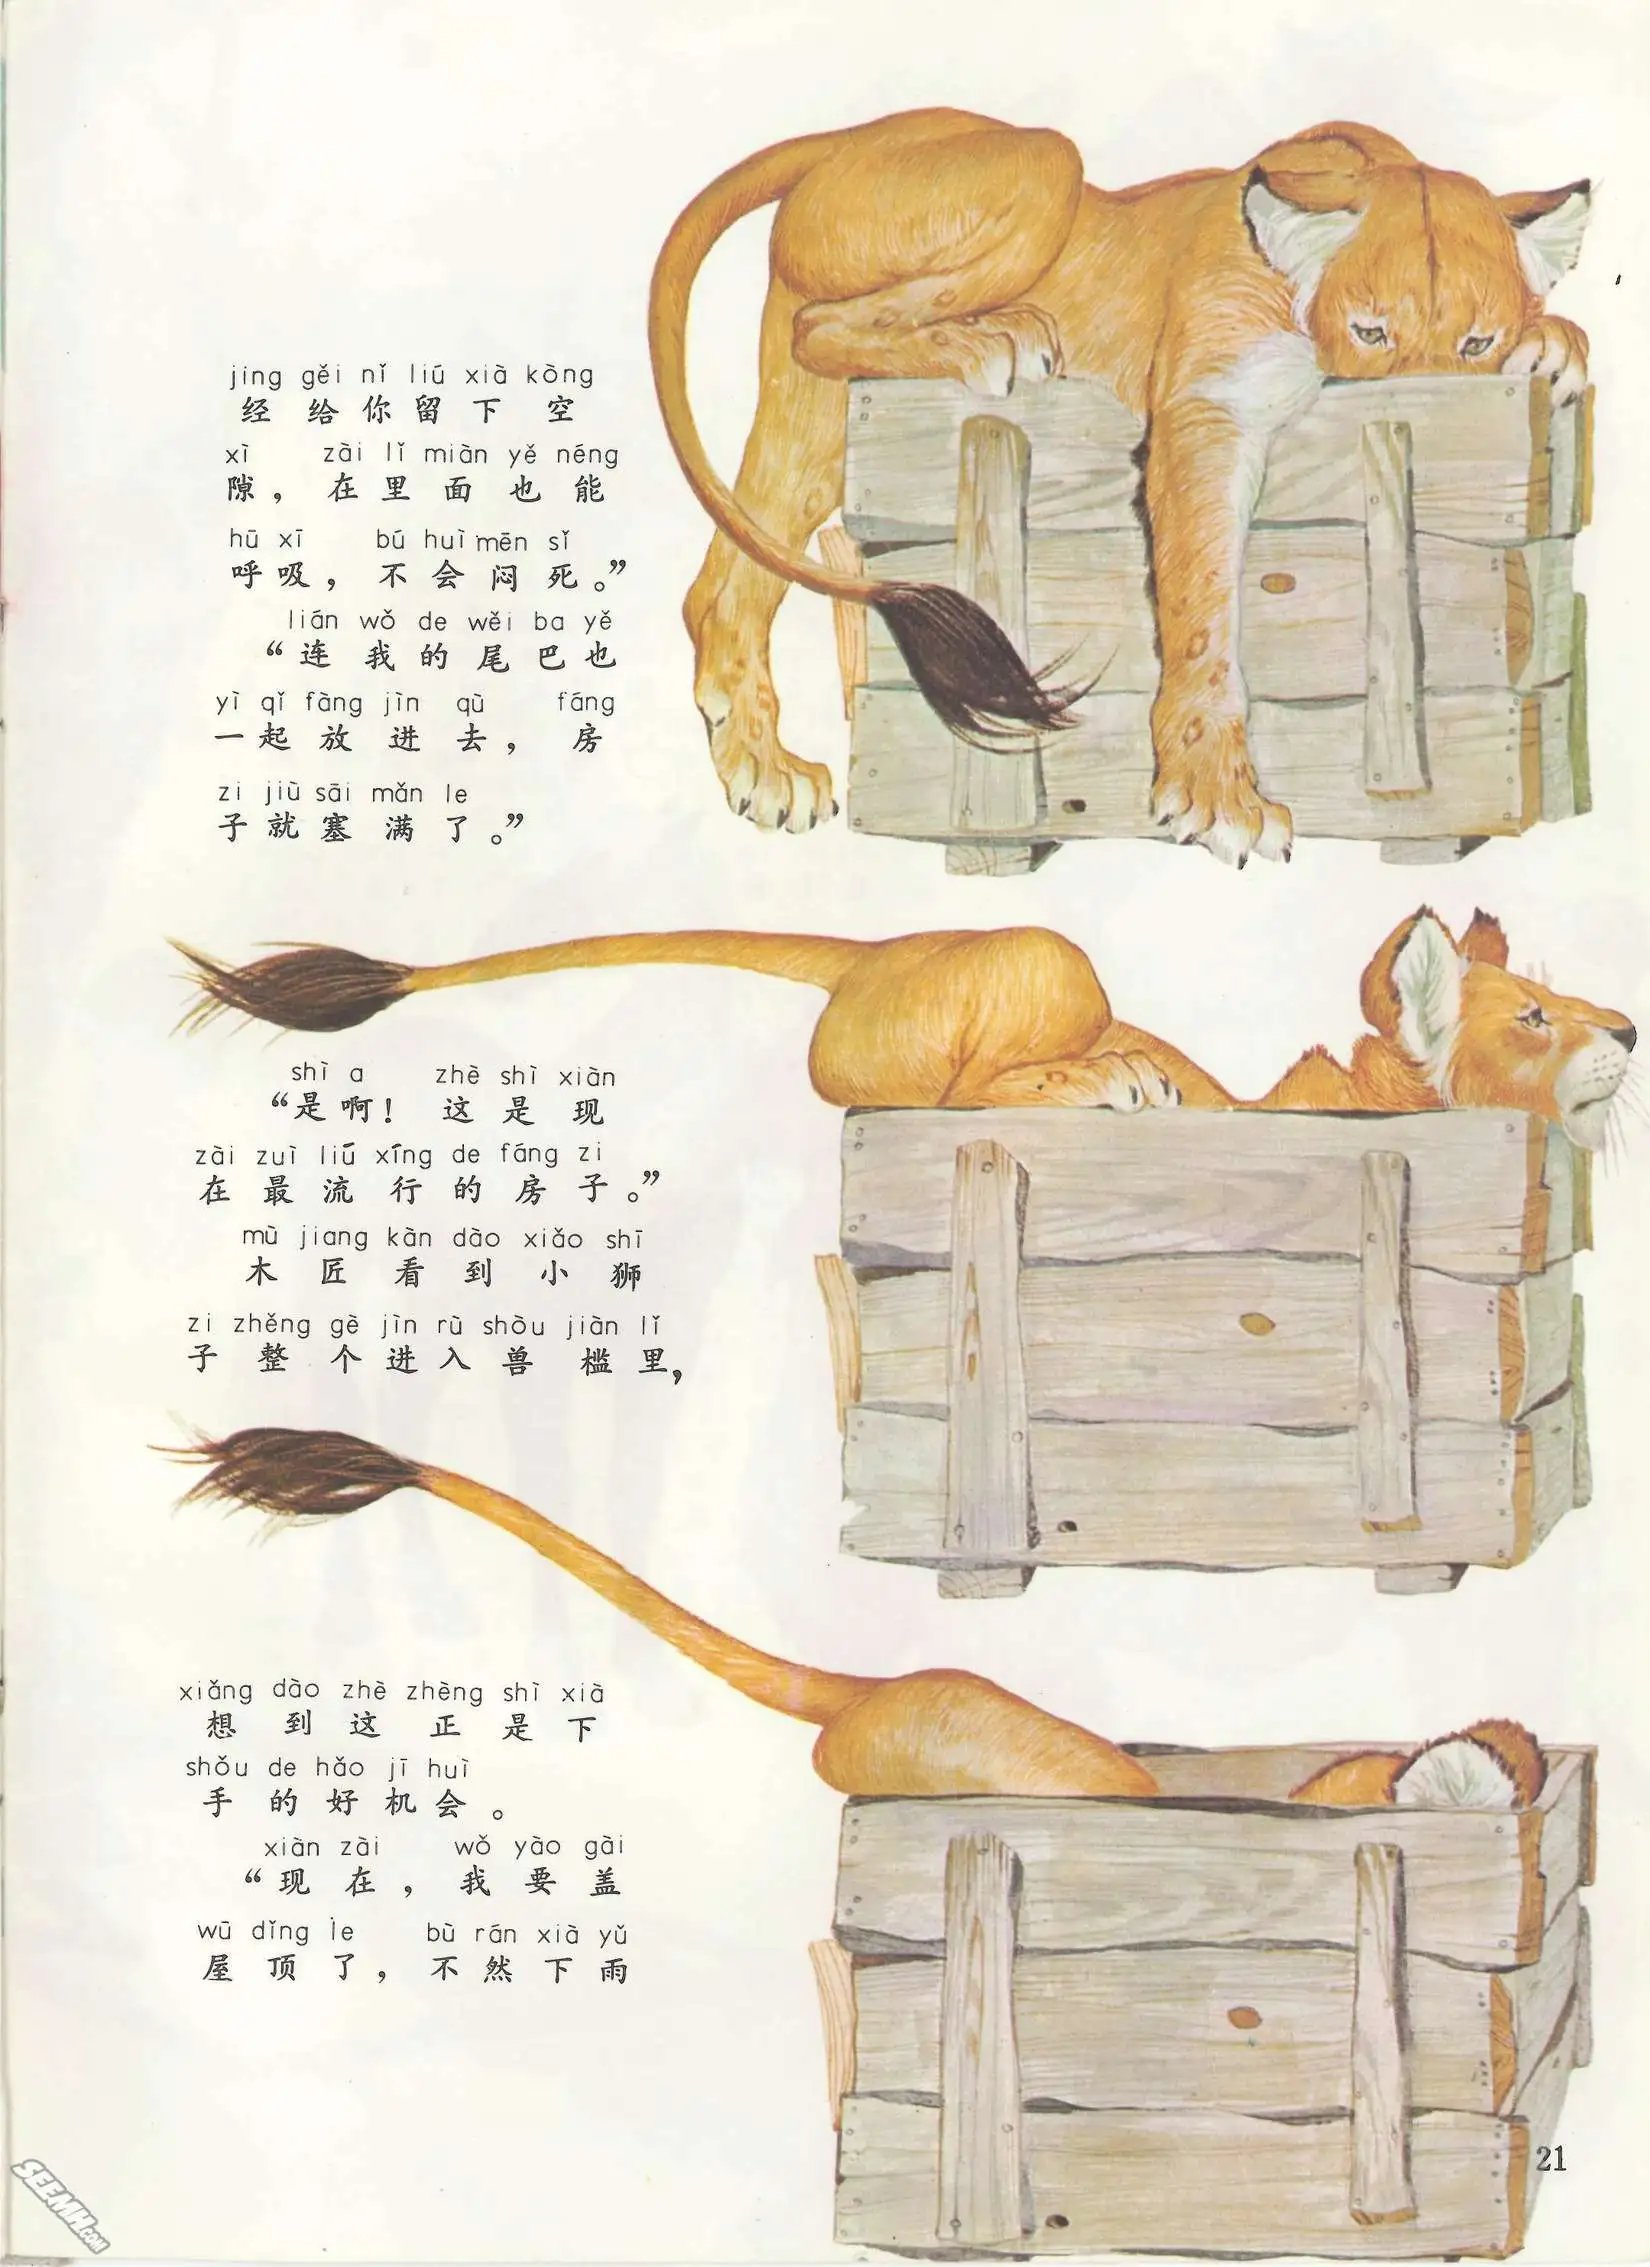 jing gěi nǐ liú xià kòng
经给你留下空
xì zài lǐ miàn yě néng
隙，在里面也能
hū xī bú huì mēn sǐ
呼吸，不会闷死。”
lián wǒ de wěi ba yě
“连我的尾巴也
yì qǐ fàng jìn qù fáng
一起放进去，房
zi jiù sāi mǎn le
子就塞满了。”
shì a zhè shì xiàn
“是啊！这是现
zài zuì liú xíng de fáng zi
在最流行的房子。”
mù jiang kàn dào xiǎo shī
木匠看到小狮
zi zhěng gè jìn rù shòu jiàn lǐ
子整个进入兽槛里，
xiǎng dào zhè zhèng shì xià
想到这正是下
shǒu de hǎo jī huì
手的好机会。
xiàn zài wǒ yào gài
“现在，我要盖
wū dǐng le bù rán xià yǔ
屋顶了，不然下雨
21
SEEMH.COM